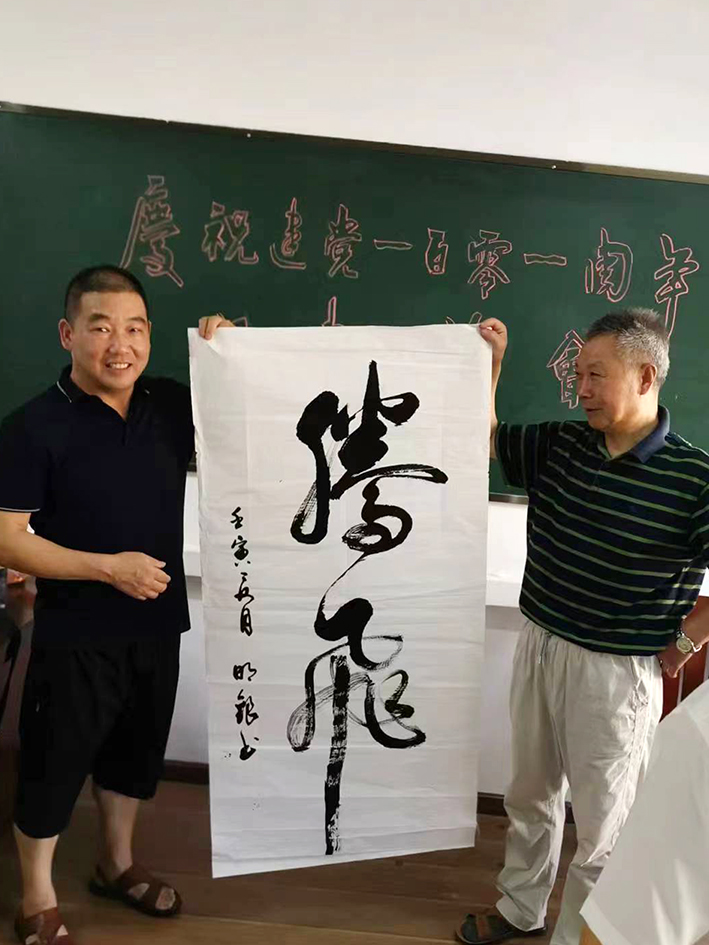 慶祝建党一百零一周年
會
騰飛
壬寅夏月 明銀书